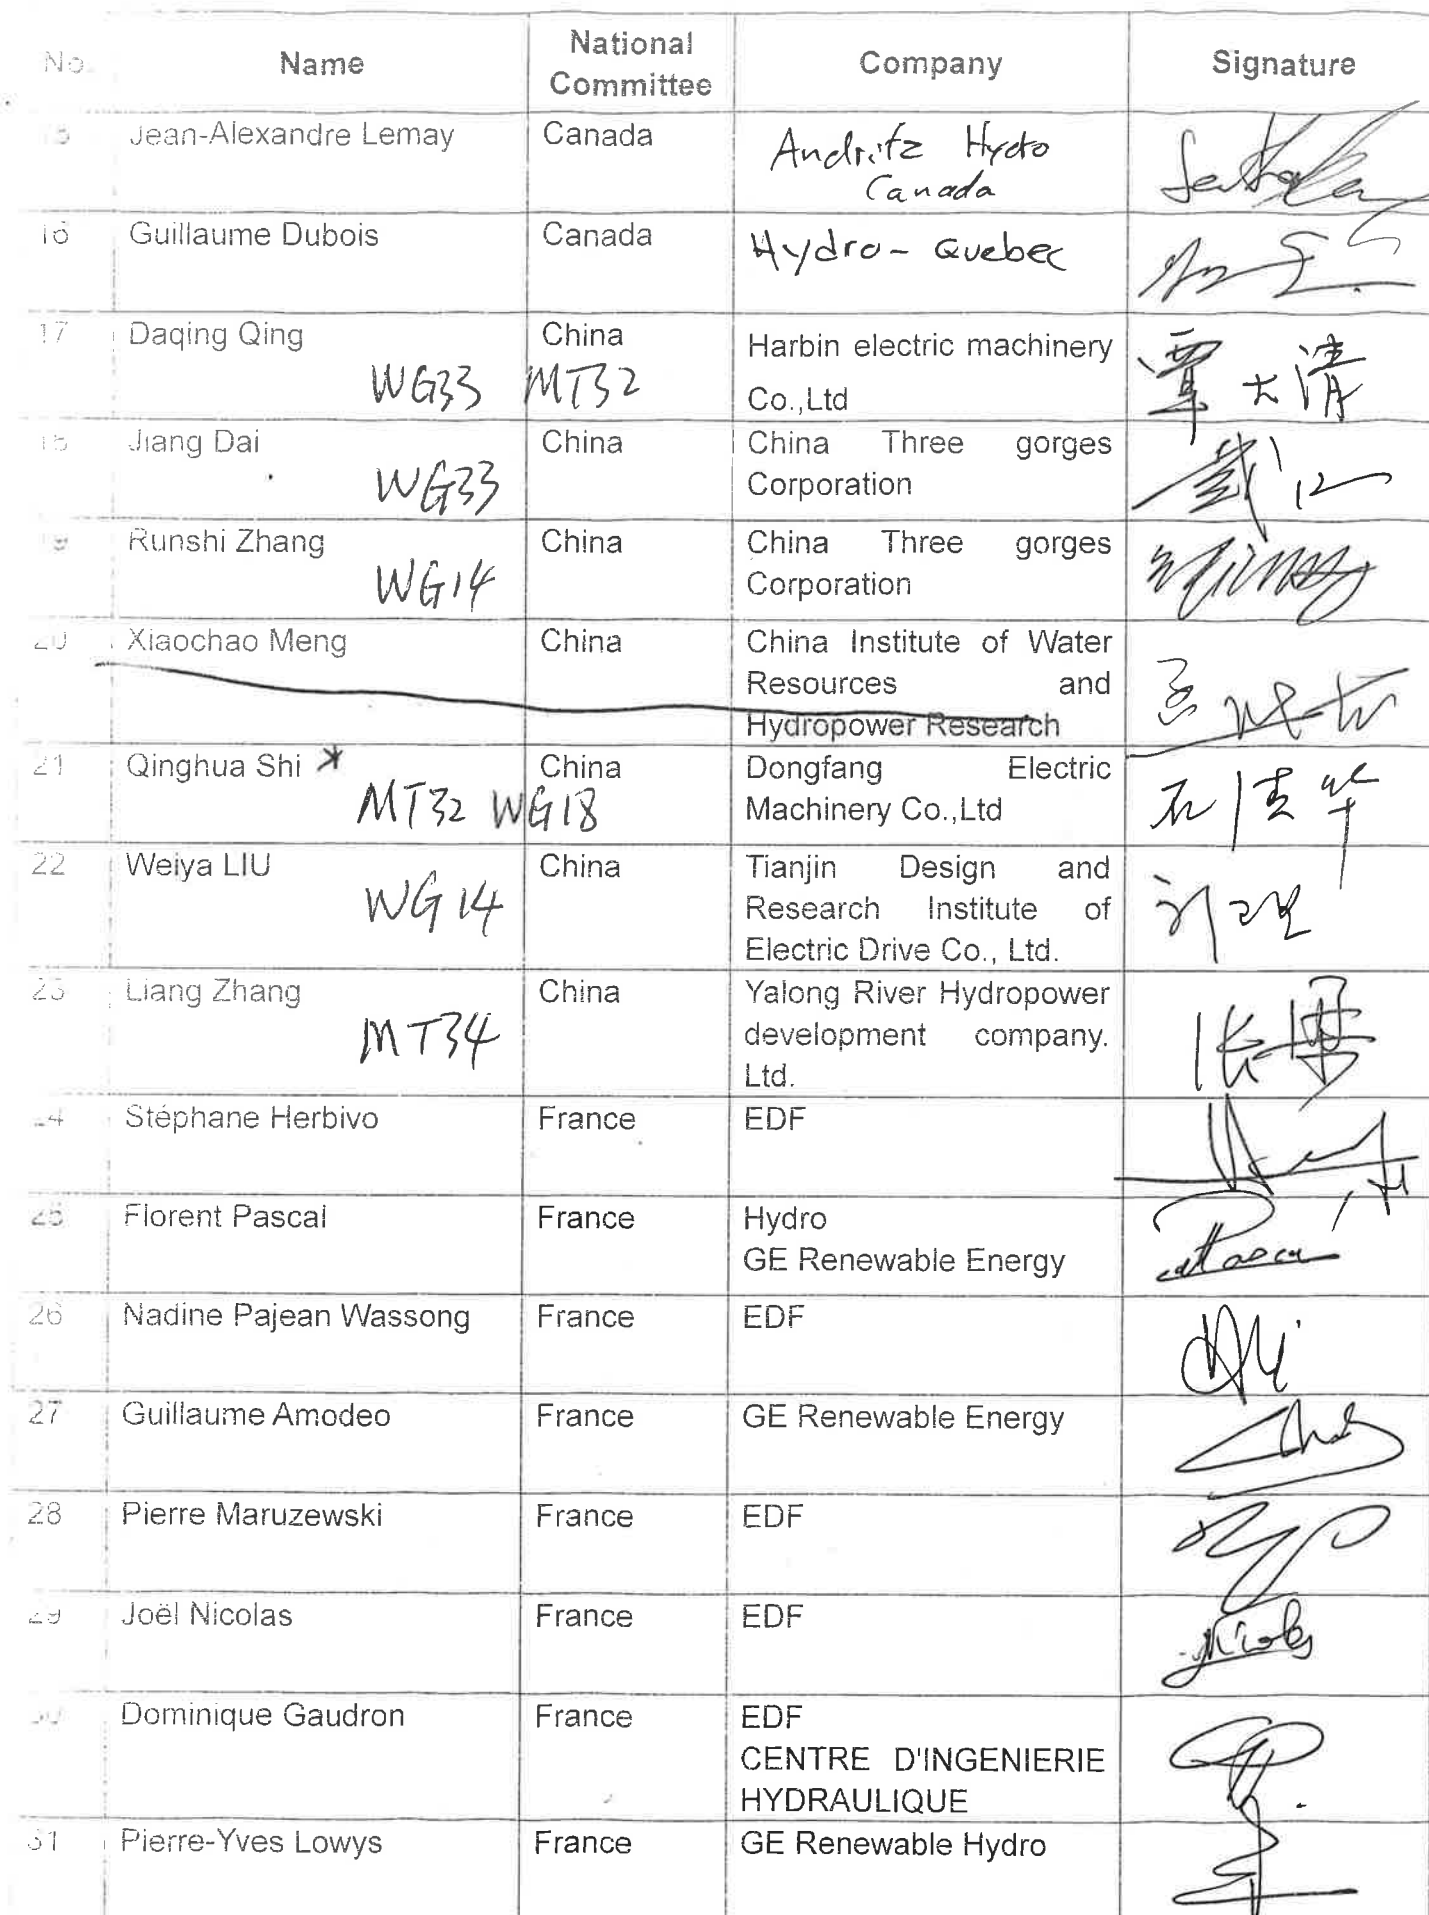 No. Name National Committee Company Signature
15 Jean-Alexandre Lemay Canada Andritz Hydro Canada
16 Guillaume Dubois Canada Hydro-Quebec
17 Daqing Qing China Harbin electric machinery
WG33 MT32 Co.,Ltd 覃大清
18 Jiang Dai China China Three gorges
WG33 Corporation 戴江
19 Runshi Zhang China China Three gorges
WG14 Corporation
20 Xiaochao Meng China China Institute of Water
Resources and
Hydropower Research
21 Qinghua Shi * China Dongfang Electric
MT32 WG18 Machinery Co.,Ltd 石清华
22 Weiya LIU China Tianjin Design and
WG14 Research Institute of
Electric Drive Co., Ltd.
23 Liang Zhang China Yalong River Hydropower
MT34 development company.
Ltd. 张梁
24 Stéphane Herbivo France EDF
25 Florent Pascal France Hydro
GE Renewable Energy
26 Nadine Pajean Wassong France EDF
27 Guillaume Amodeo France GE Renewable Energy
28 Pierre Maruzewski France EDF
29 Joël Nicolas France EDF Nicolas
30 Dominique Gaudron France EDF
CENTRE D'INGENIERIE
HYDRAULIQUE
31 Pierre-Yves Lowys France GE Renewable Hydro